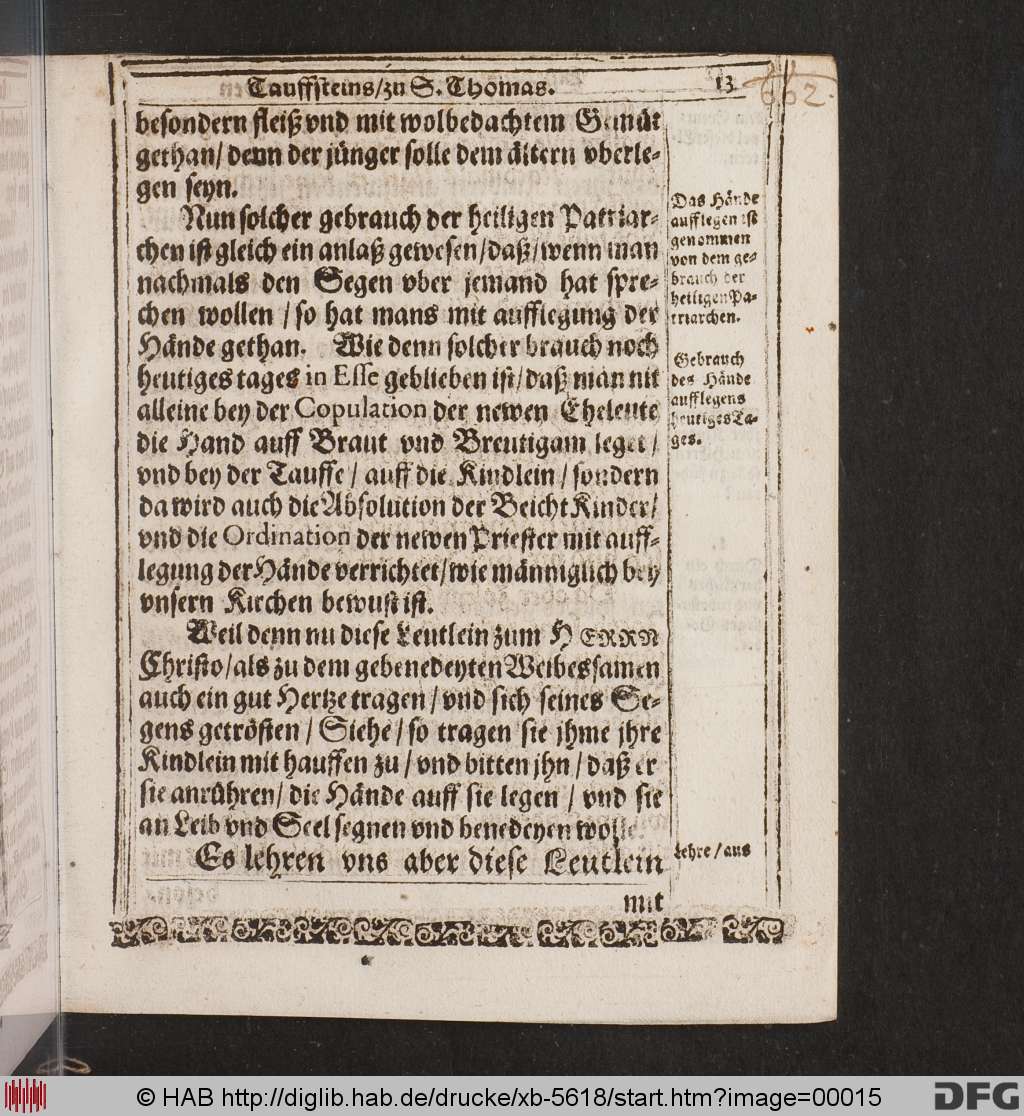 Tauffsteins/zu S. Thomas. 13
662.
besondern fleiß vnd mit wolbedachtem Gemüt
gethan/ denn der jünger solle dem ältern vberle-
gen seyn.
Nun solcher gebrauch der heiligen Patriar-
chen ist gleich ein anlaß gewesen/daß/wenn man
nachmals den Segen vber jemand hat spre-
chen wollen / so hat mans mit aufflegung der
Hände gethan. Wie denn solcher brauch noch
heutiges tages in Esse geblieben ist/daß man nit
alleine bey der Copulation der newen Eheleute
die Hand auff Braut vnd Breutigam leget /
vnd bey der Tauffe / auff die Kindlein / sondern
da wird auch die Absolution der Beicht Kinder/
vnd die Ordination der newen Priester mit auff-
legung der Hände verrichtet/wie männiglich bey
vnsern Kirchen bewust ist.
Weil denn nu diese Leutlein zum HERRN
Christo/als zu dem gebenedeyten Weibessamen
auch ein gut Hertze tragen / vnd sich seines Se-
gens getrösten / Siehe / so tragen sie jhme jhre
Kindlein mit hauffen zu / vnd bitten jhn / daß er
sie anrühren/ die Hände auff sie legen / vnd sie
an Leib vnd Seel segnen vnd benedeyen wolle.
Es lehren vns aber diese Leutlein
mit
Das Hände
aufflegen ist
genommen
von dem ge-
brauch der
heiligen Pa-
triarchen.
Gebrauch
des Hände
aufflegens
heutiges Ta-
ges.
Lehre / aus
© HAB http://diglib.hab.de/drucke/xb-5618/start.htm?image=00015
DFG